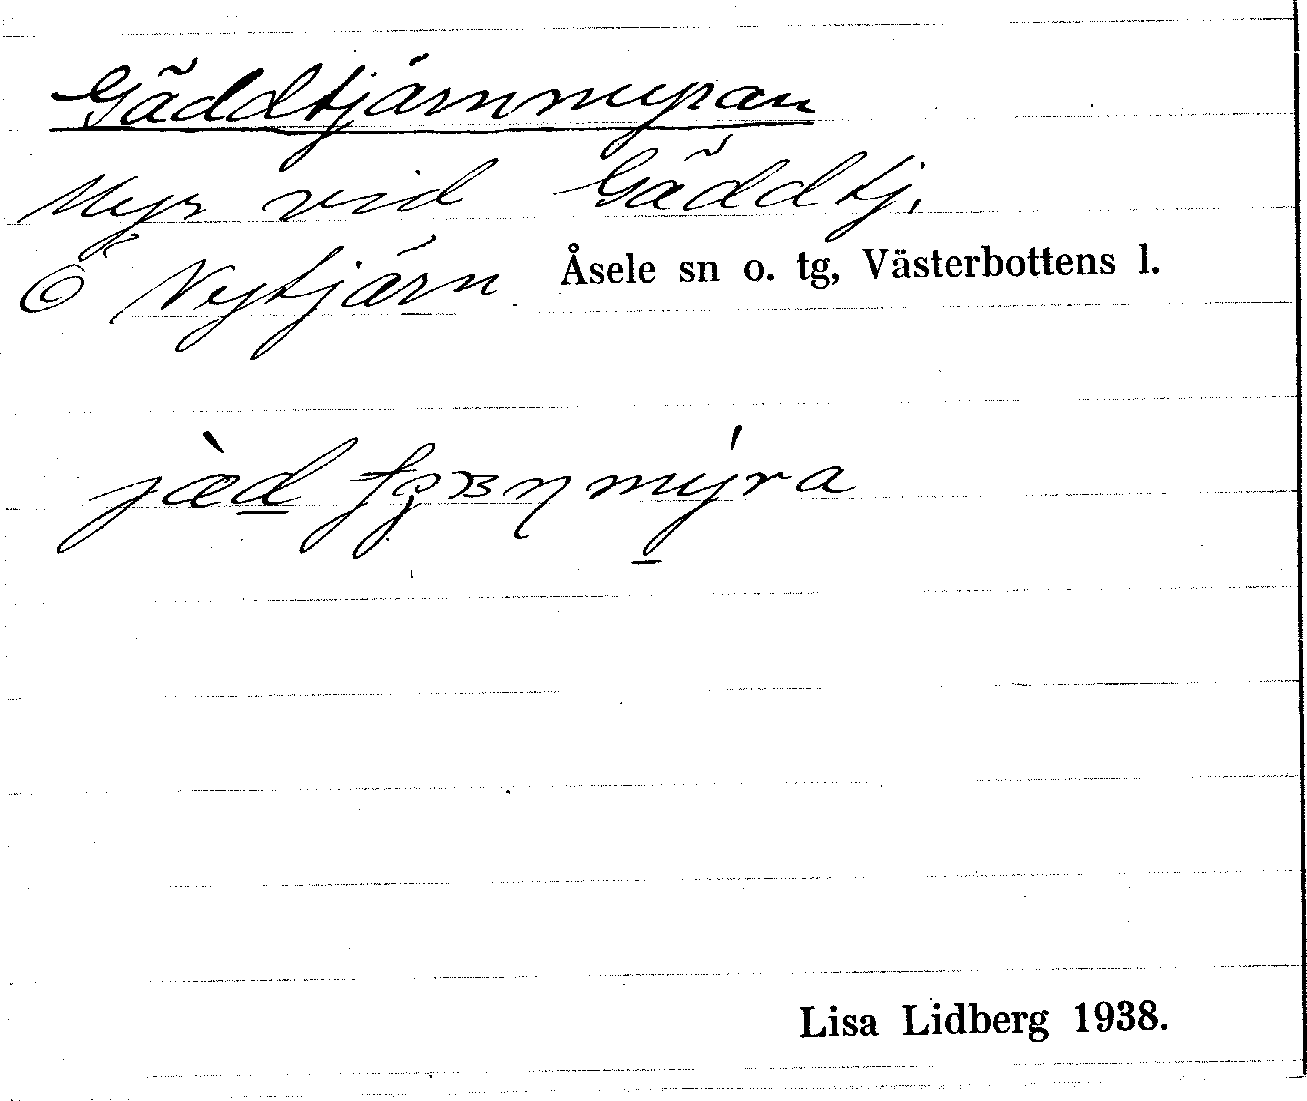 Gäddtjärnmyran
Myr vid Gäddtj.
Ö Nytjärn Åsele sn o. tg, Västerbottens l.
mýra
Lisa Lidberg 1938.